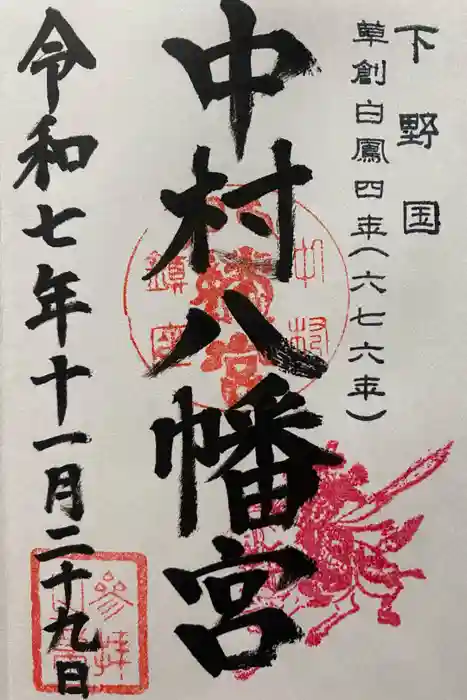 下野国
草創白鳳四年(六七六年)
中村八幡宮
令和七年十一月二十九日
中村
八幡宮
鎮座
参拝